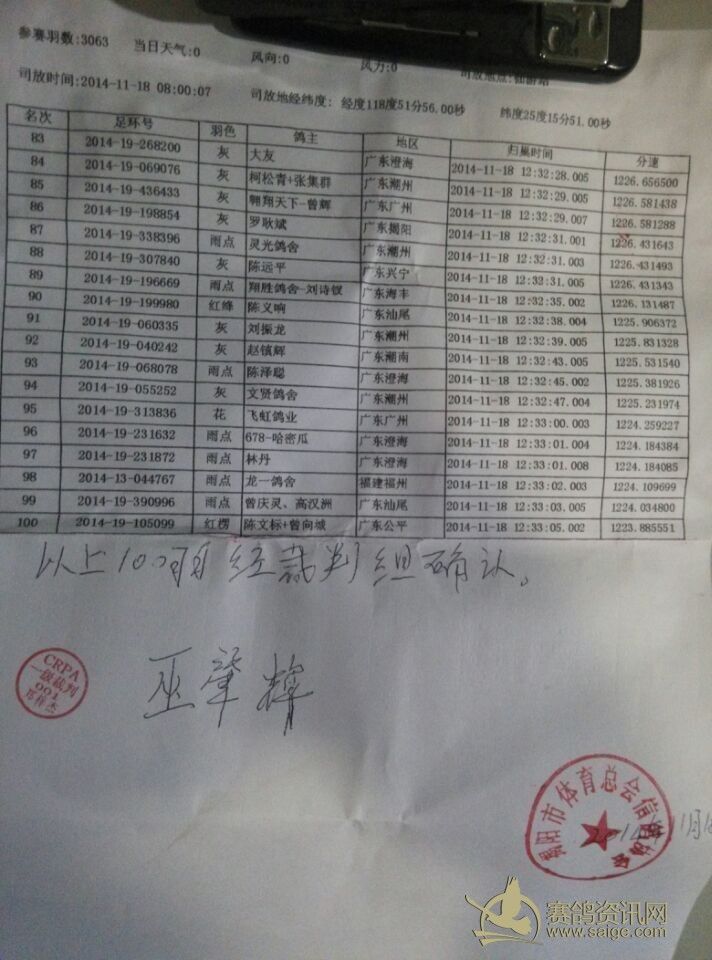 参赛羽数:3063 当日天气:0 风向:0 风力:0
司放时间:2014-11-18 08:00:07 司放地经纬度: 经度118度51分56.00秒 纬度25度15分51.00秒
名次 足环号 羽色 鸽主 地区 归巢时间 分速
83 2014-19-268200 灰 大友 广东澄海 2014-11-18 12:32:28.005 1226.656500
84 2014-19-069076 灰 柯松青+张集群 广东潮州 2014-11-18 12:32:29.005 1226.581438
85 2014-19-436433 灰 翱翔天下-曾辉 广东广州 2014-11-18 12:32:29.007 1226.581288
86 2014-19-198854 灰 罗耿斌 广东揭阳 2014-11-18 12:32:31.001 1226.431643
87 2014-19-338396 雨点 灵光鸽舍 广东潮州 2014-11-18 12:32:31.003 1226.431493
88 2014-19-307840 灰 陈远平 广东兴宁 2014-11-18 12:32:31.005 1226.431343
89 2014-19-196669 雨点 翔胜鸽舍-刘诗钗 广东海丰 2014-11-18 12:32:35.002 1226.131487
90 2014-19-199980 红绛 陈义响 广东汕尾 2014-11-18 12:32:38.004 1225.906372
91 2014-19-060335 灰 刘振龙 广东潮州 2014-11-18 12:32:39.005 1225.831328
92 2014-19-040242 灰 赵镇辉 广东潮南 2014-11-18 12:32:43.005 1225.531540
93 2014-19-068078 雨点 陈泽聪 广东澄海 2014-11-18 12:32:45.002 1225.381926
94 2014-19-055252 灰 文贤鸽舍 广东潮州 2014-11-18 12:32:47.004 1225.231974
95 2014-19-313836 花 飞虹鸽业 广东广州 2014-11-18 12:33:00.003 1224.259227
96 2014-19-231632 雨点 678-哈密瓜 广东澄海 2014-11-18 12:33:01.004 1224.184384
97 2014-19-231872 雨点 林丹 广东澄海 2014-11-18 12:33:01.008 1224.184085
98 2014-13-044767 雨点 龙一鸽舍 福建福州 2014-11-18 12:33:02.003 1224.109699
99 2014-19-390996 雨点 曾庆灵、高汉洲 广东汕尾 2014-11-18 12:33:03.005 1224.034800
100 2014-19-105099 红楞 陈文标+曾向城 广东公平 2014-11-18 12:33:05.002 1223.885551
以上100羽经裁判组确认。
CRPA
一级裁判
001
巫肇辉
揭阳市体育总会信鸽协会
2014年11月18
赛鸽资讯网
www.saige.com